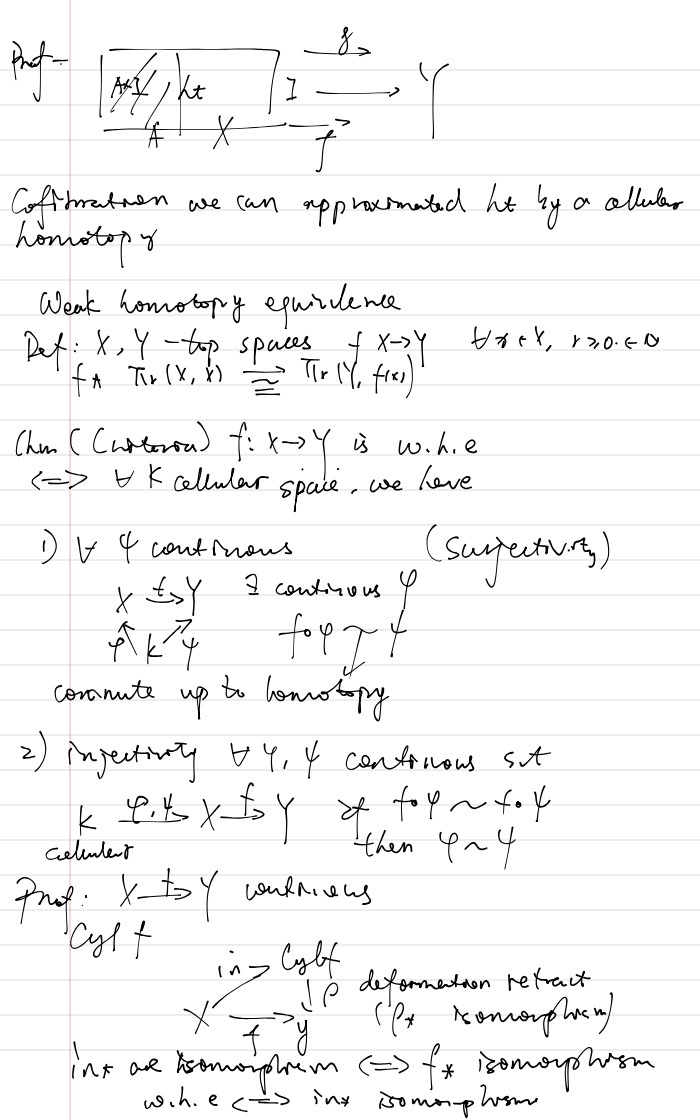 Proof -
A×I ht I g Y
A X f
Cofibration we can approximated ht by a cellular
homotopy
Weak homotopy equivalence
Def: X, Y - top spaces f X→Y ∀x∈X, r≥0
f* πr(X, x) ⟶ ≅ πr(Y, f(x))
Thm (Criterion) f: X→Y is w.h.e
<=> ∀ K cellular space, we have
1) ∀ ψ continous (Surjectivity)
X f→ Y ∃ continous φ
φ K ψ f∘φ ~ ψ
commute up to homotopy
2) injectivity ∀ φ, ψ continous s.t
K φ,ψ→ X f→ Y if f∘φ ~ f∘ψ
cellular then φ ~ ψ
Proof: X f→ Y continous
Cyl f
in Cylf
↓ρ deformation retract
X f→ Y (ρ* isomorphism)
in* are isomorphism <=> f* isomorphism
w.h.e <=> in* isomorphism